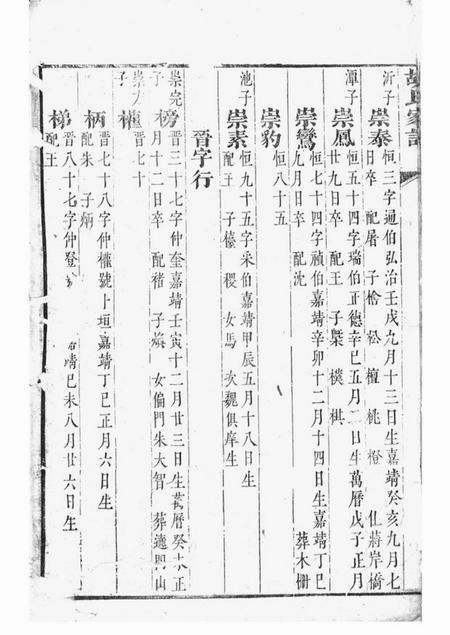 胡氏家譜
沂子
崇泰 恒三字通伯弘治壬戌九月十三日生嘉靖癸亥九月七
日卒 配屠 子桧 松 檀 桃 橙 仕蔣岸橋
潭子
崇鳳 恒五十四字瑞伯正德辛巳五月二日生萬曆戊子正月
廿九日卒 配王 子槩 樸 棋
崇鸞 恒七十四字禎伯嘉靖辛卯十二月十四日生嘉靖丁巳
九月日卒 配沈 葬木柵
崇豹 恒八十五
池子
崇素 恒九十五字采伯嘉靖甲辰五月十八日生
配王 子檯 稷 女馬 次魏俱庠生
晋字行
崇完子
榜 晋三十七字仲奎嘉靖壬寅十二月廿三日生萬曆癸未正
月十二日卒 配褚 子 女偏門朱大智 葬 山
崇 子
權 晋七十
柄 晋七十八字仲權號卜垣嘉靖丁巳正月六日生
配朱 子炳
梯 晋八十七字仲登 靖己未八月廿六日生
配王